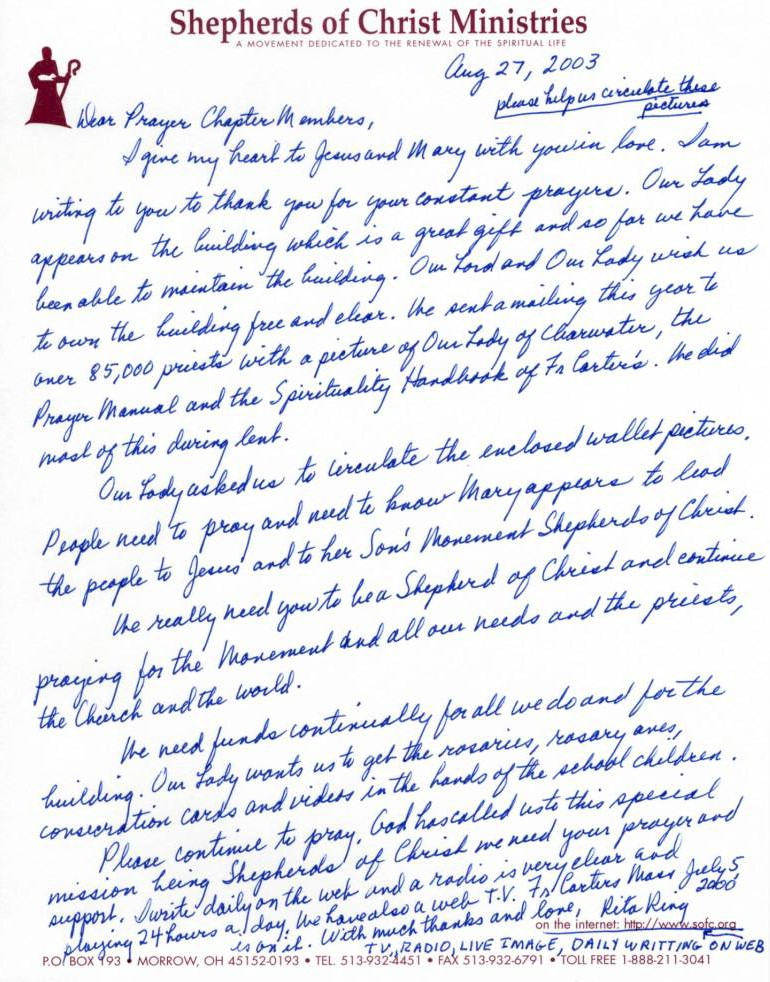 Shepherds of Christ Ministries
A MOVEMENT DEDICATED TO THE RENEWAL OF THE SPIRITUAL LIFE
Aug 27, 2003
please help us circulate these
pictures
Dear Prayer Chapter Members,
I give my heart to Jesus and Mary with you in love. I am
writing to you to thank you for your constant prayers. Our Lady
appears on the building which is a great gift and so far we have
been able to maintain the building. Our Lord and Our Lady wish us
to own the building free and clear. We sent a mailing this year to
over 85,000 priests with a picture of Our Lady of Clearwater, the
Prayer Manual and the Spirituality Handbook of Fr Carter's. We did
most of this during lent.
Our Lady asked us to circulate the enclosed wallet pictures.
People need to pray and need to know Mary appears to lead
the people to Jesus and to her Son's Movement Shepherds of Christ.
We really need you to be a Shepherd of Christ and continue
praying for the Movement and all our needs and the priests,
the Church and the world.
We need funds continually for all we do and for the
building. Our Lady wants us to get the rosaries, rosary aves,
consecration cards and videos in the hands of the school children.
Please continue to pray. God has called us to this special
mission being Shepherds of Christ we need your prayer and
support. I write daily on the web and a radio is very clear and
playing 24 hours a day. We have also a web T.V. Fr Carters Mass July 5,
2000
is on it. With much thanks and love, Rita Ring
on the internet: http://www.sofc.org
TV, RADIO, LIVE IMAGE, DAILY WRITTING ON WEB
P.O. BOX 193 • MORROW, OH 45152-0193 • TEL. 513-932-4451 • FAX 513-932-6791 • TOLL FREE 1-888-211-3041